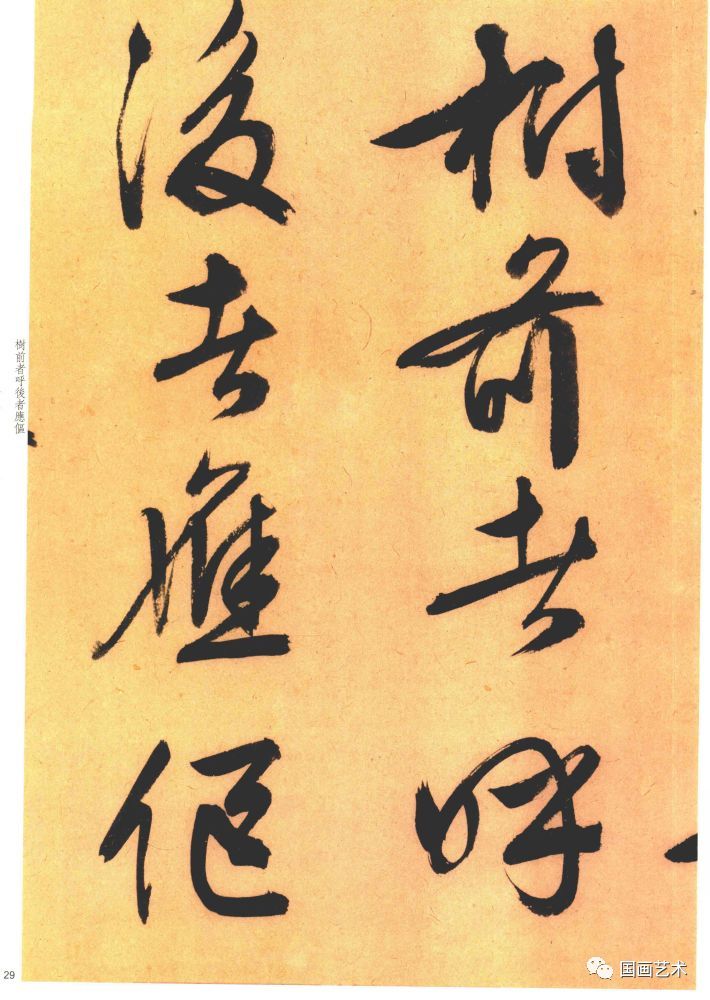 樹前者呼
後者應傴
樹前者呼後者應傴
29
国画艺术